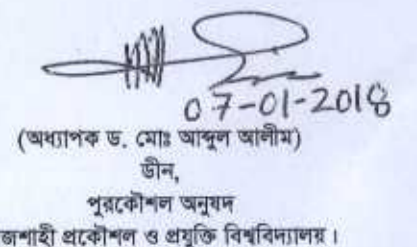 07-01-2018
(অধ্যাপক ড. মোঃ আব্দুল আলীম)
ডীন,
পুরকৌশল অনুষদ
জশাহী প্রকৌশল ও প্রযুক্তি বিশ্ববিদ্যালয়।